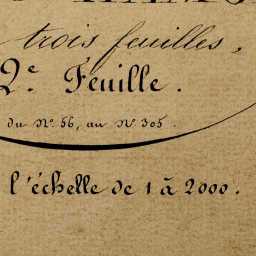 trois feuilles,
2.e Feuille.
du N.º 56, au N.º 305.
l'échelle de 1 à 2000.